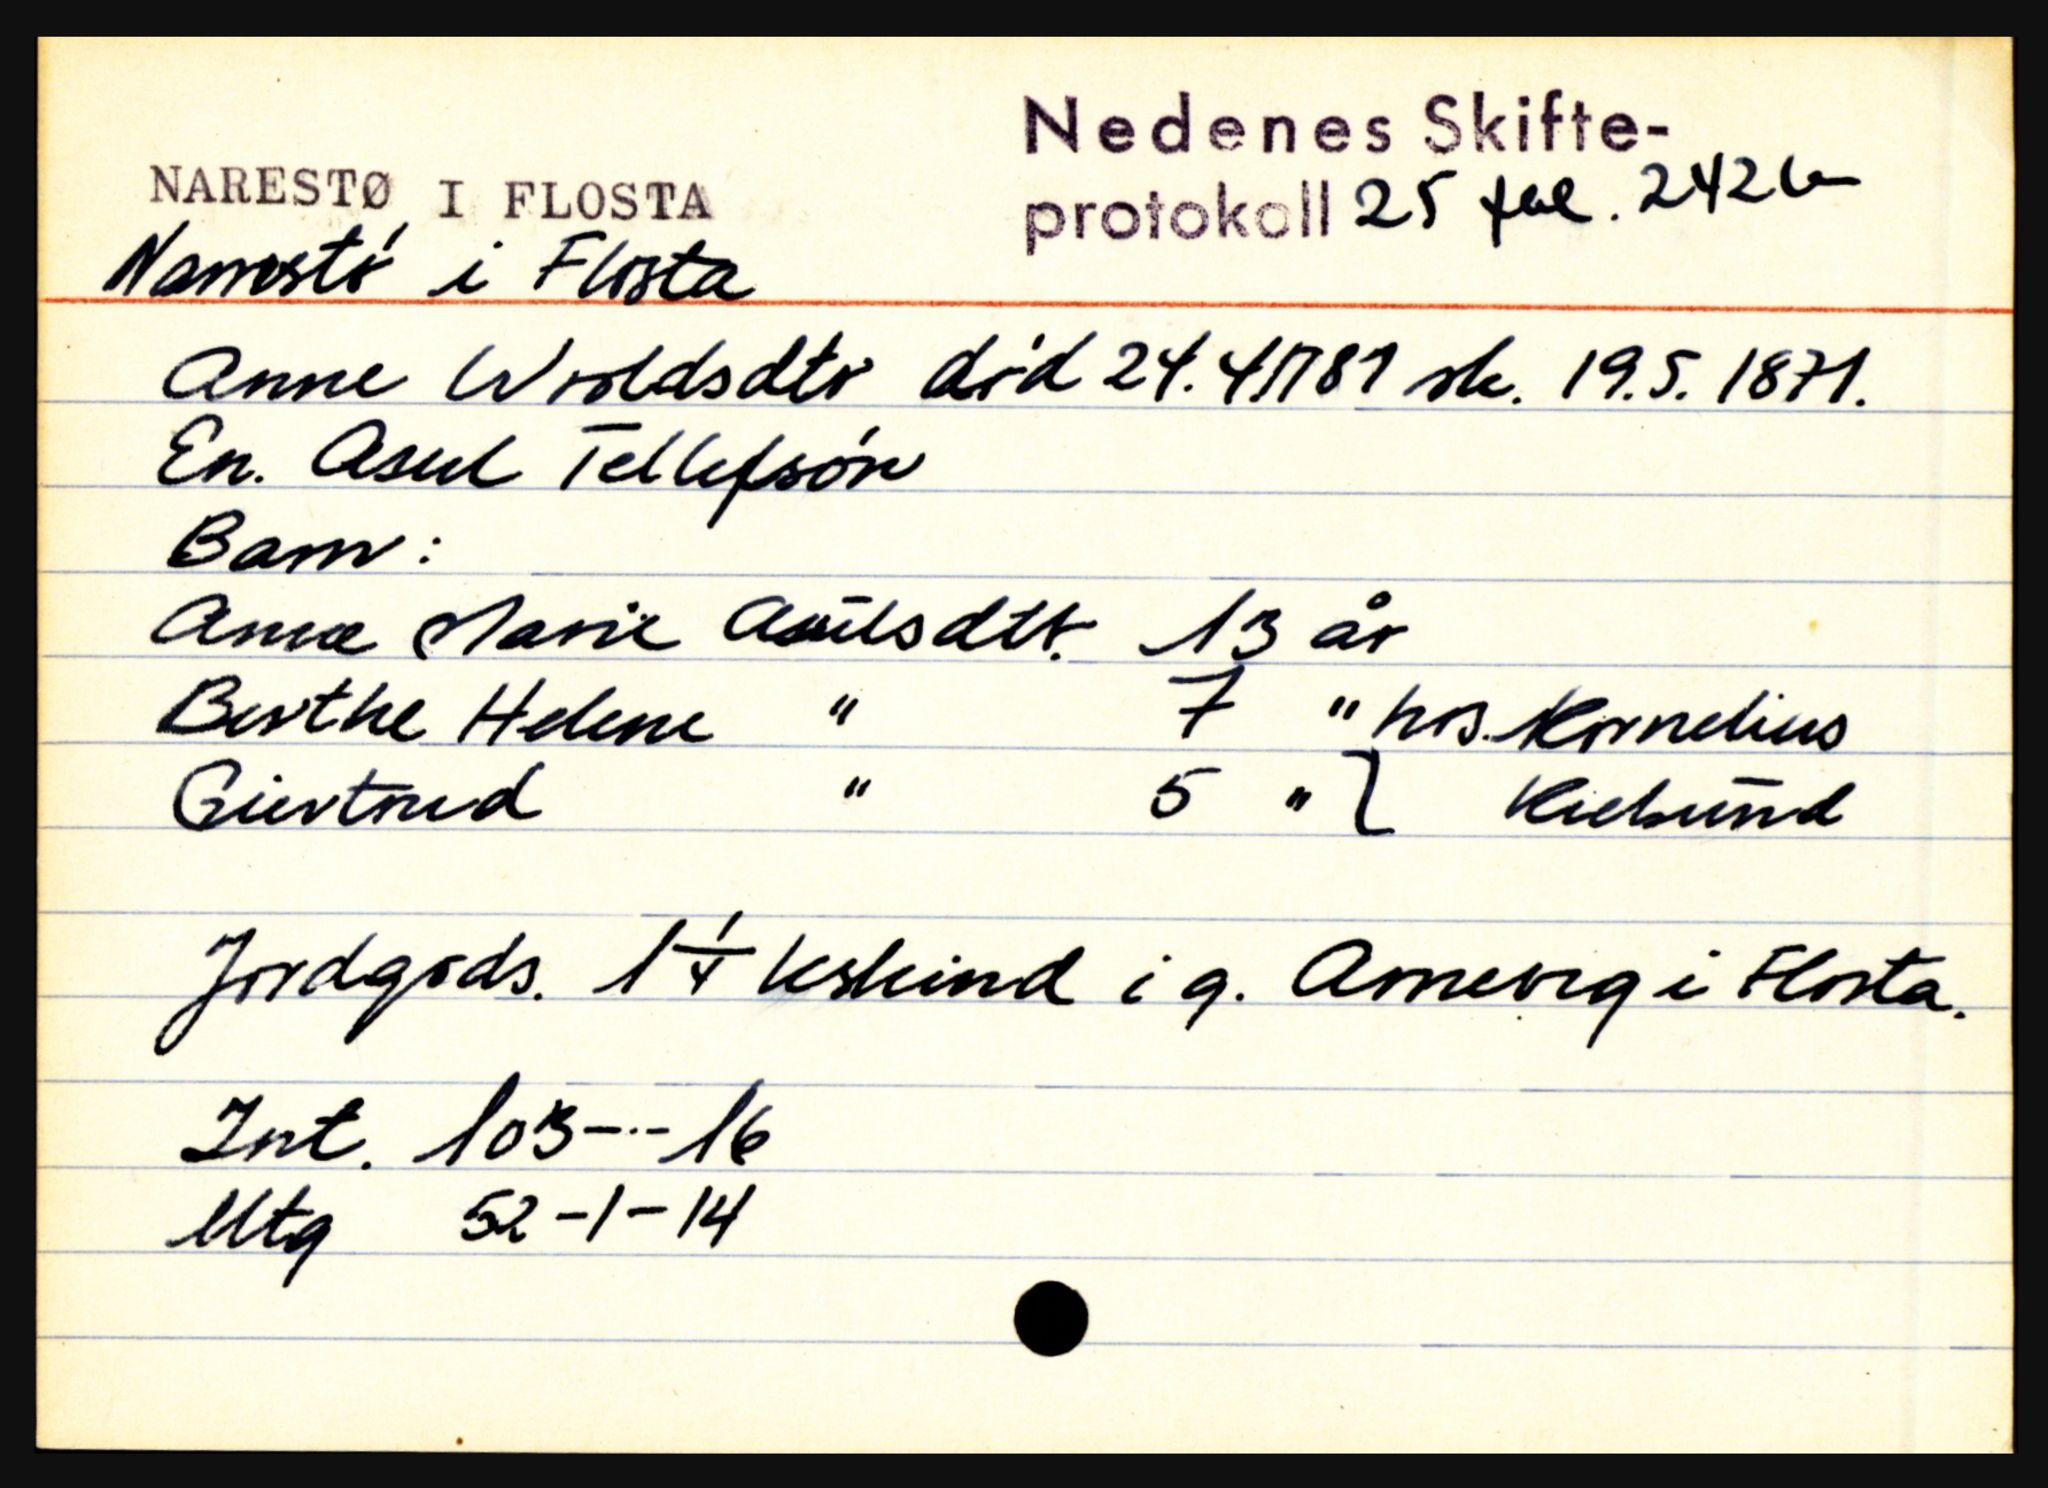 Nedenes Skifte-
NARESTØ I FLOSTA
protokoll 25 fol. 242b
Narrestø i Flosta
Anne Wroldsdtr død 24.4.1781 sk. 19.5.1871.
En. Asul Tellefsøn
Barn:
Anne Marie Asulsdtr. 13 år
Berthe Helene " 7 " hos. Kornelius
Giertrud " 5 " } Kielsund
Jordgods. 1 1/4 kskind i g. Arnevig i Flosta.
Int. 103-..-16
Utg 52-1-14